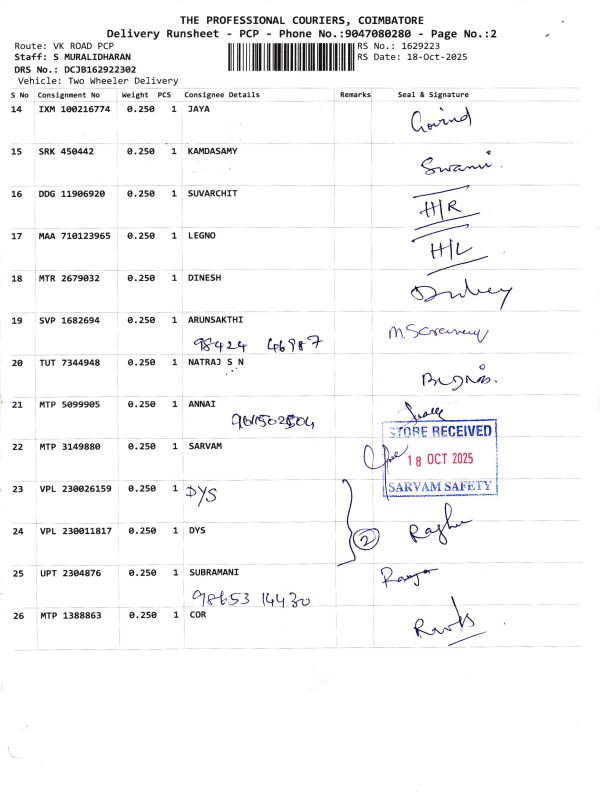 THE PROFESSIONAL COURIERS, COIMBATORE
Delivery Runsheet - PCP - Phone No.:9047080280 - Page No.:2
Route: VK ROAD PCP RS No.: 1629223
Staff: S MURALIDHARAN RS Date: 18-Oct-2025
DRS No.: DCJB162922302
Vehicle: Two Wheeler Delivery
S No Consignment No Weight PCS Consignee Details Remarks Seal & Signature
14 IXM 100216774 0.250 1 JAYA Govind
15 SRK 450442 0.250 1 KAMDASAMY Swami
16 DDG 11906920 0.250 1 SUVARCHIT H/R
17 MAA 710123965 0.250 1 LEGNO H/L
18 MTR 2679032 0.250 1 DINESH
19 SVP 1682694 0.250 1 ARUNSAKTHI
98424 46987
20 TUT 7344948 0.250 1 NATRAJ S N
21 MTP 5099905 0.250 1 ANNAI
STORE RECEIVED
22 MTP 3149880 0.250 1 SARVAM
18 OCT 2025
SARVAM SAFETY
23 VPL 230026159 0.250 1 DYS
24 VPL 230011817 0.250 1 DYS 2 Raghu
25 UPT 2304876 0.250 1 SUBRAMANI
98653 14430
26 MTP 1388863 0.250 1 COR